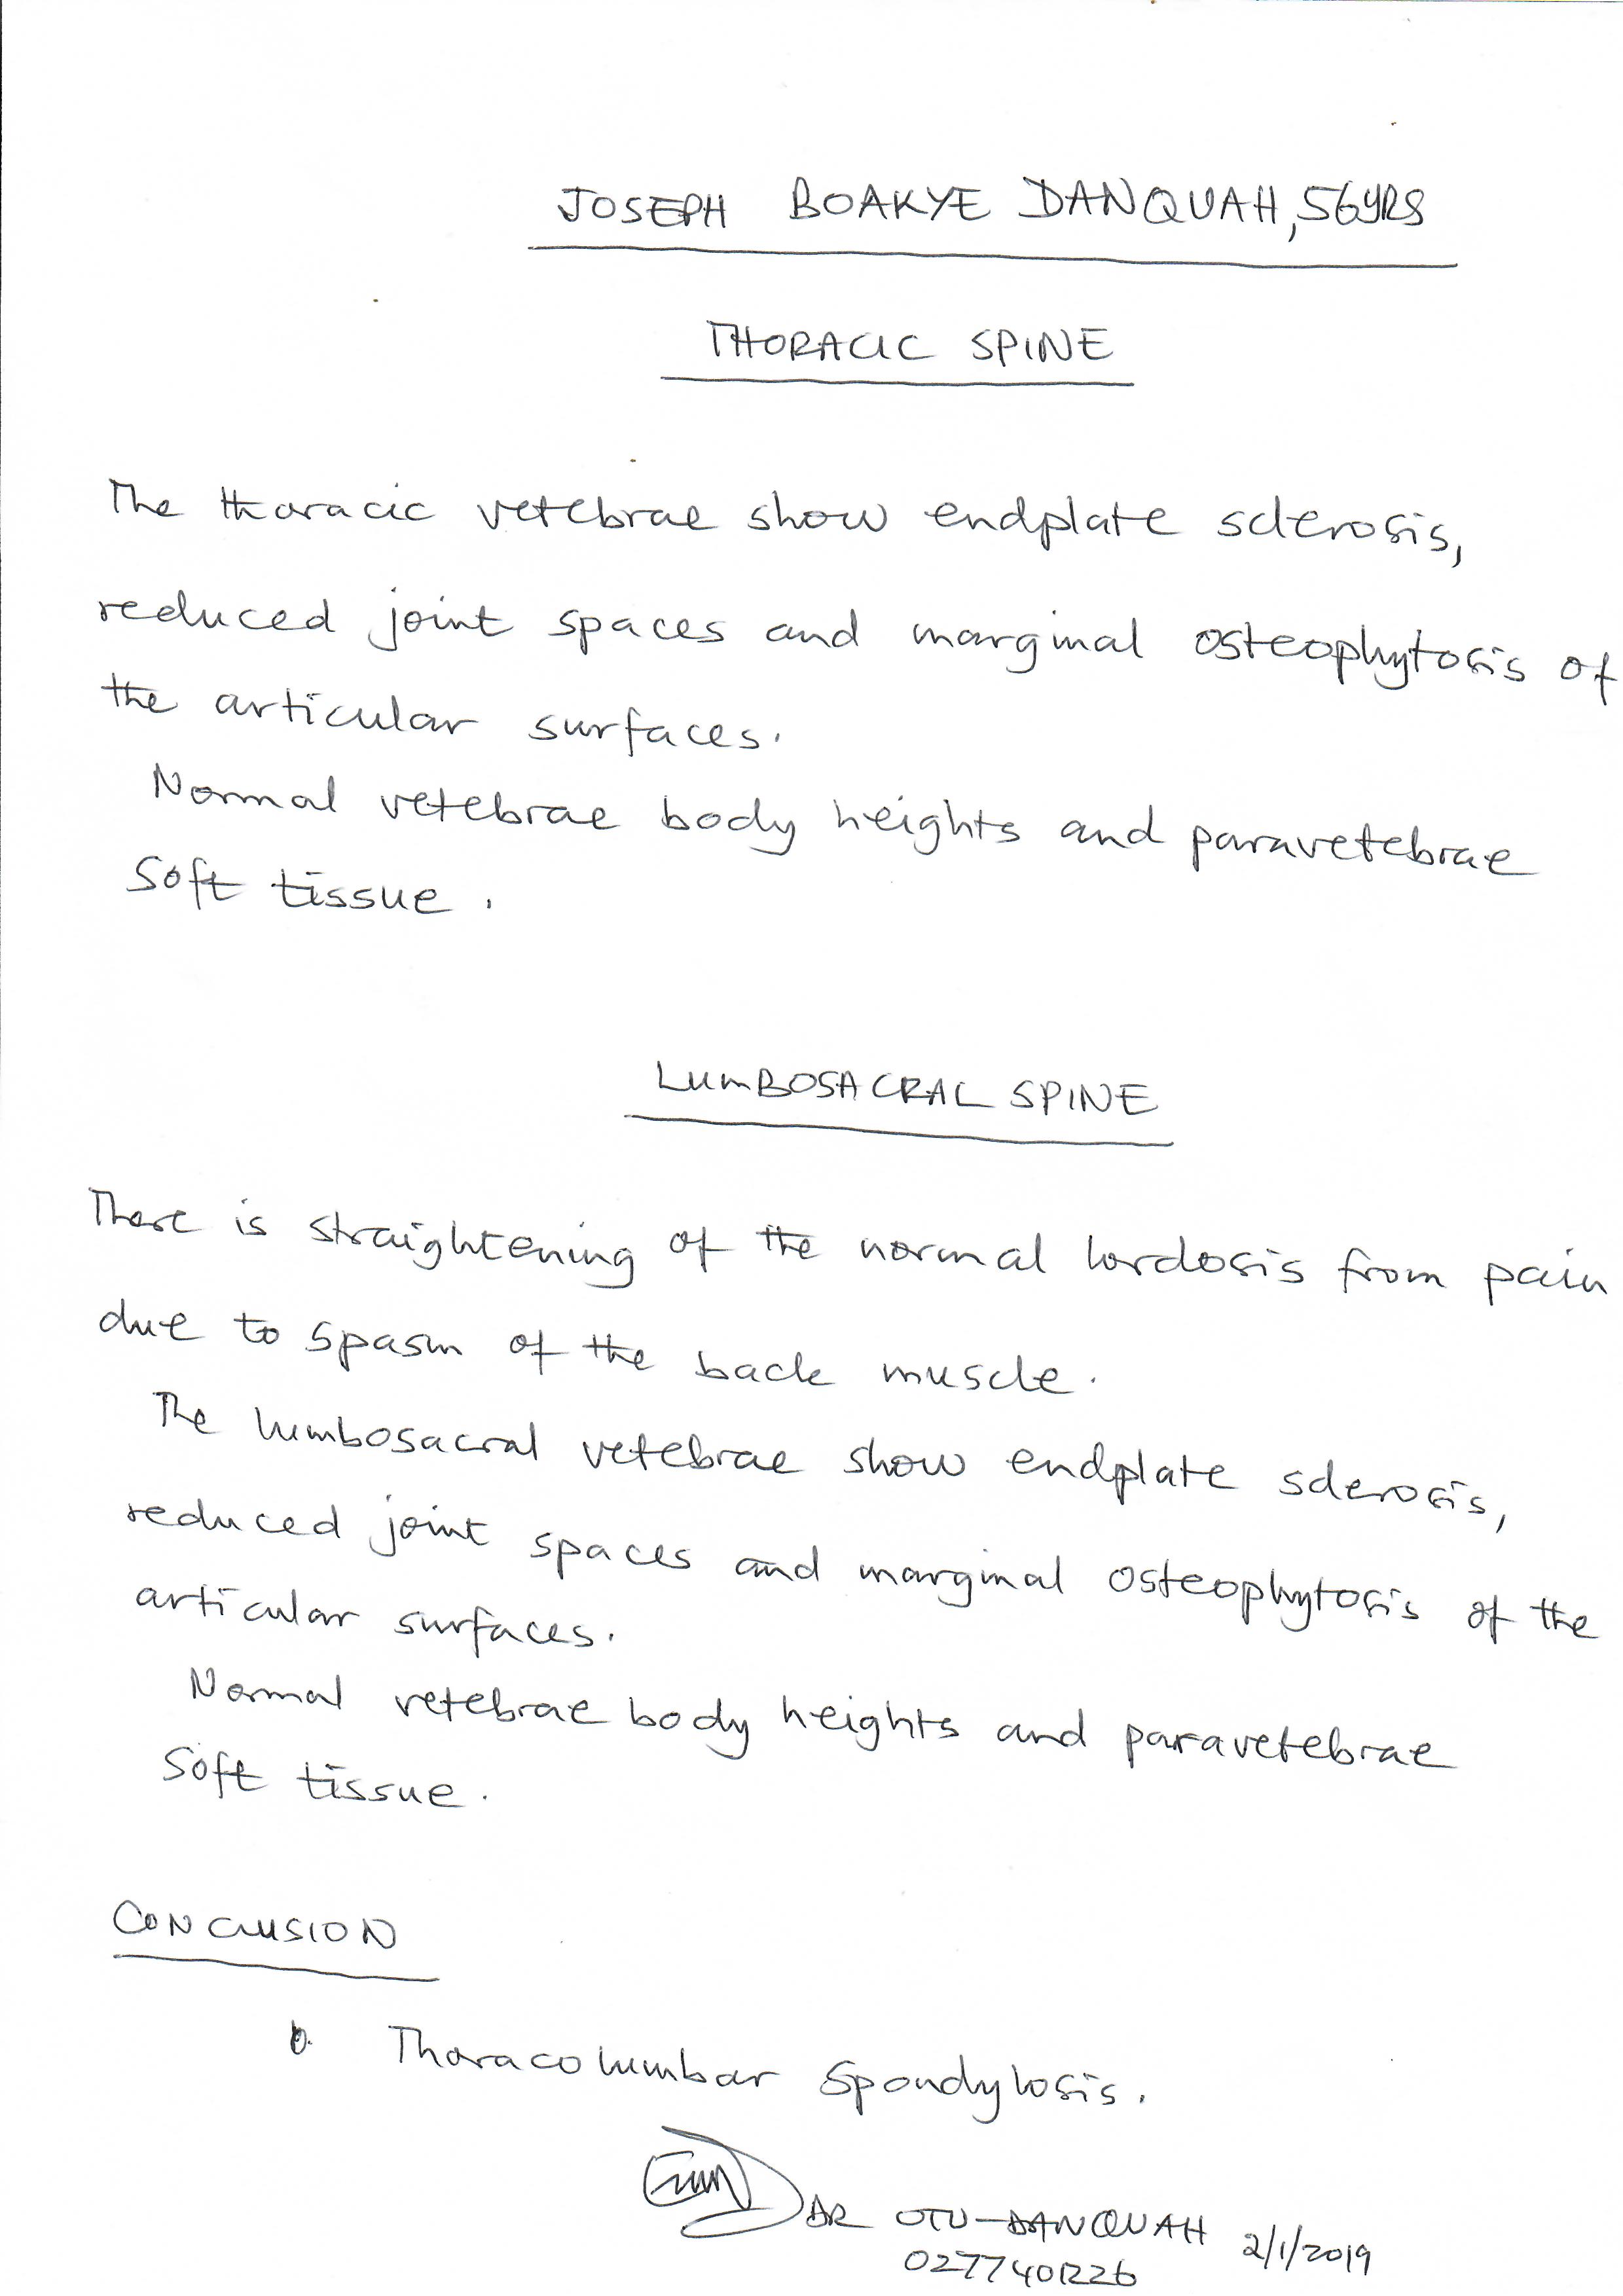 JOSEPH BOAKYE DANQUAH, 56YRS
THORACIC SPINE
The thoracic vetebrae show endplate sclerosis,
reduced joint spaces and marginal osteophytosis of
the articular surfaces.
Normal vetebrae body heights and paravetebrae
Soft tissue.
LUMBOSACRAL SPINE
There is straightening of the normal lordosis from pain
due to spasm of the back muscle.
The lumbosacral vetebrae show endplate sclerosis,
reduced joint spaces and marginal osteophytosis of the
articular surfaces.
Normal vetebrae body heights and paravetebrae
Soft tissue.
CONCLUSION
Thoracolumbar Spondylosis.
DR OTU-DANQUAH 2/1/2019
0277401226